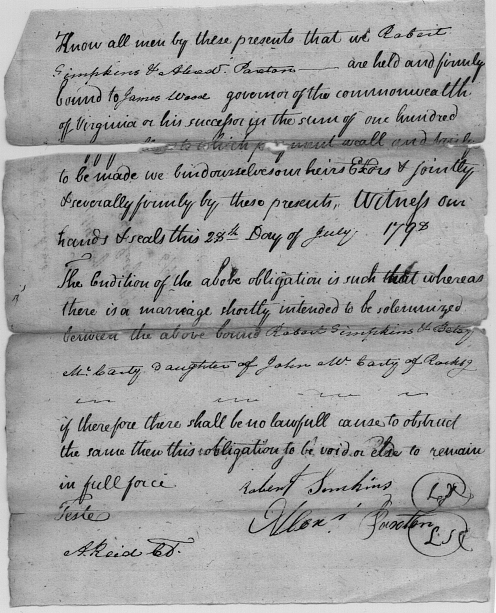 Know all men by these presents that we Robert
Simpkins & Alexdr. Paxton are held and firmly
bound to James Wood governor of the commonwealth
of Virginia or his successor in the sum of one hundred
to which payment well and truly
to be made we bind ourselves our heirs Exors & jointly
& severally firmly by these presents, Witness our
hands & seals this 28th Day of July 1798
The Condition of the above obligation is such that whereas
there is a marriage shortly intended to be solemnized
between the above bound Robert Simpkins & Betsy
Mc.Carty daughter of John Mc.Carty of Rockg
if therefore there shall be no lawfull cause to obstruct
the same then this obligation to be void or else to remain
in full force
Robert Simkins LS
Teste
Alexr. Paxton LS
A. Reid